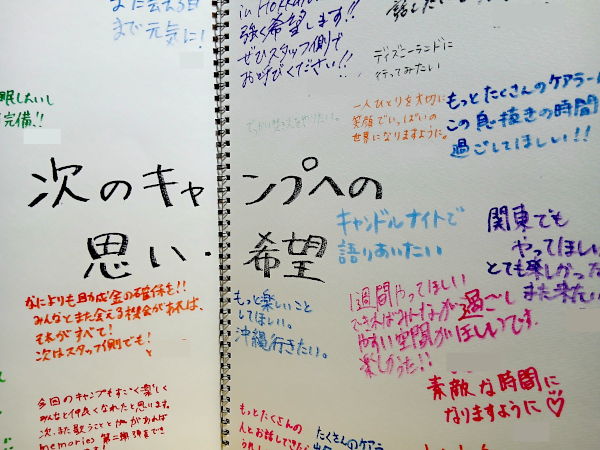 まで元気に!
眠したいし
完備!!
in Hokka
強く希望します!!
ぜひスタッフ側で
およびください!!
ディズニーランドに
行ってみたい
一人ひとりを大切に
笑顔でいっぱいの
世界になりますように。
もっとたくさんのケアラー
この息抜きの時間
過ごしてほしい!!
次のキャンプへの
思い・希望
キャンドルナイトで
語りあいたい
関東でも
やってほしい
とても楽しかった
また来たい
なによりも助成金の確保を!!
みんなとまた会える機会があれば、
それがすべて!
次はスタッフ側でも!
もっと楽しいこと
してほしい。
沖縄行きたい。
1週間やってほしい
できればみんなが過〜し
やすい空間がほしいです。
楽しかった!!
素敵な時間に
なりますように♡
今回のキャンプもすごく楽しく
みんなと仲良くなれたと思います。
次、また歌うことがあれば
memories 第二弾
もっとたくさんの
人とお話してきた
たくさんのケアラ